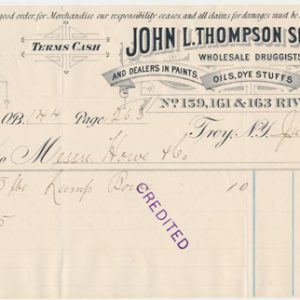 good order, for Merchandise our responsibility ceases, and all claims for damages must be
TERMS CASH
JOHN L. THOMPSON SO
WHOLESALE DRUGGISTS
AND DEALERS IN PAINTS, OILS, DYE STUFFS
No 159, 161 & 163 RIV
OB. Page 263
Troy, N.Y.
Messrs Howe & Co
Lump 10
CREDITED